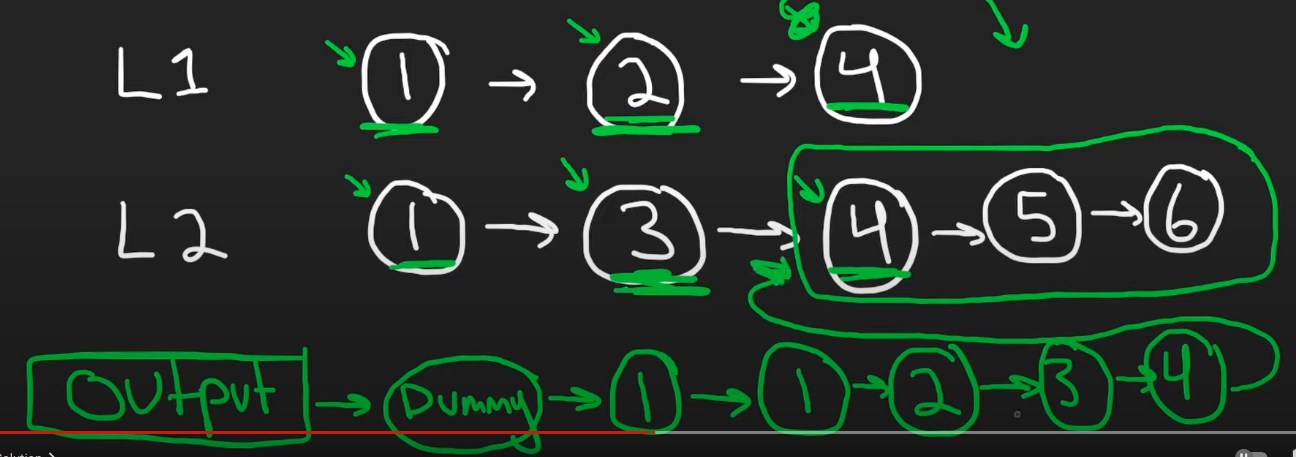 L1 1 → 2 → 4
L2 1 → 3 → 4 → 5 → 6
OUtput → Dummy → 1 → 1 → 2 → 3 → 4